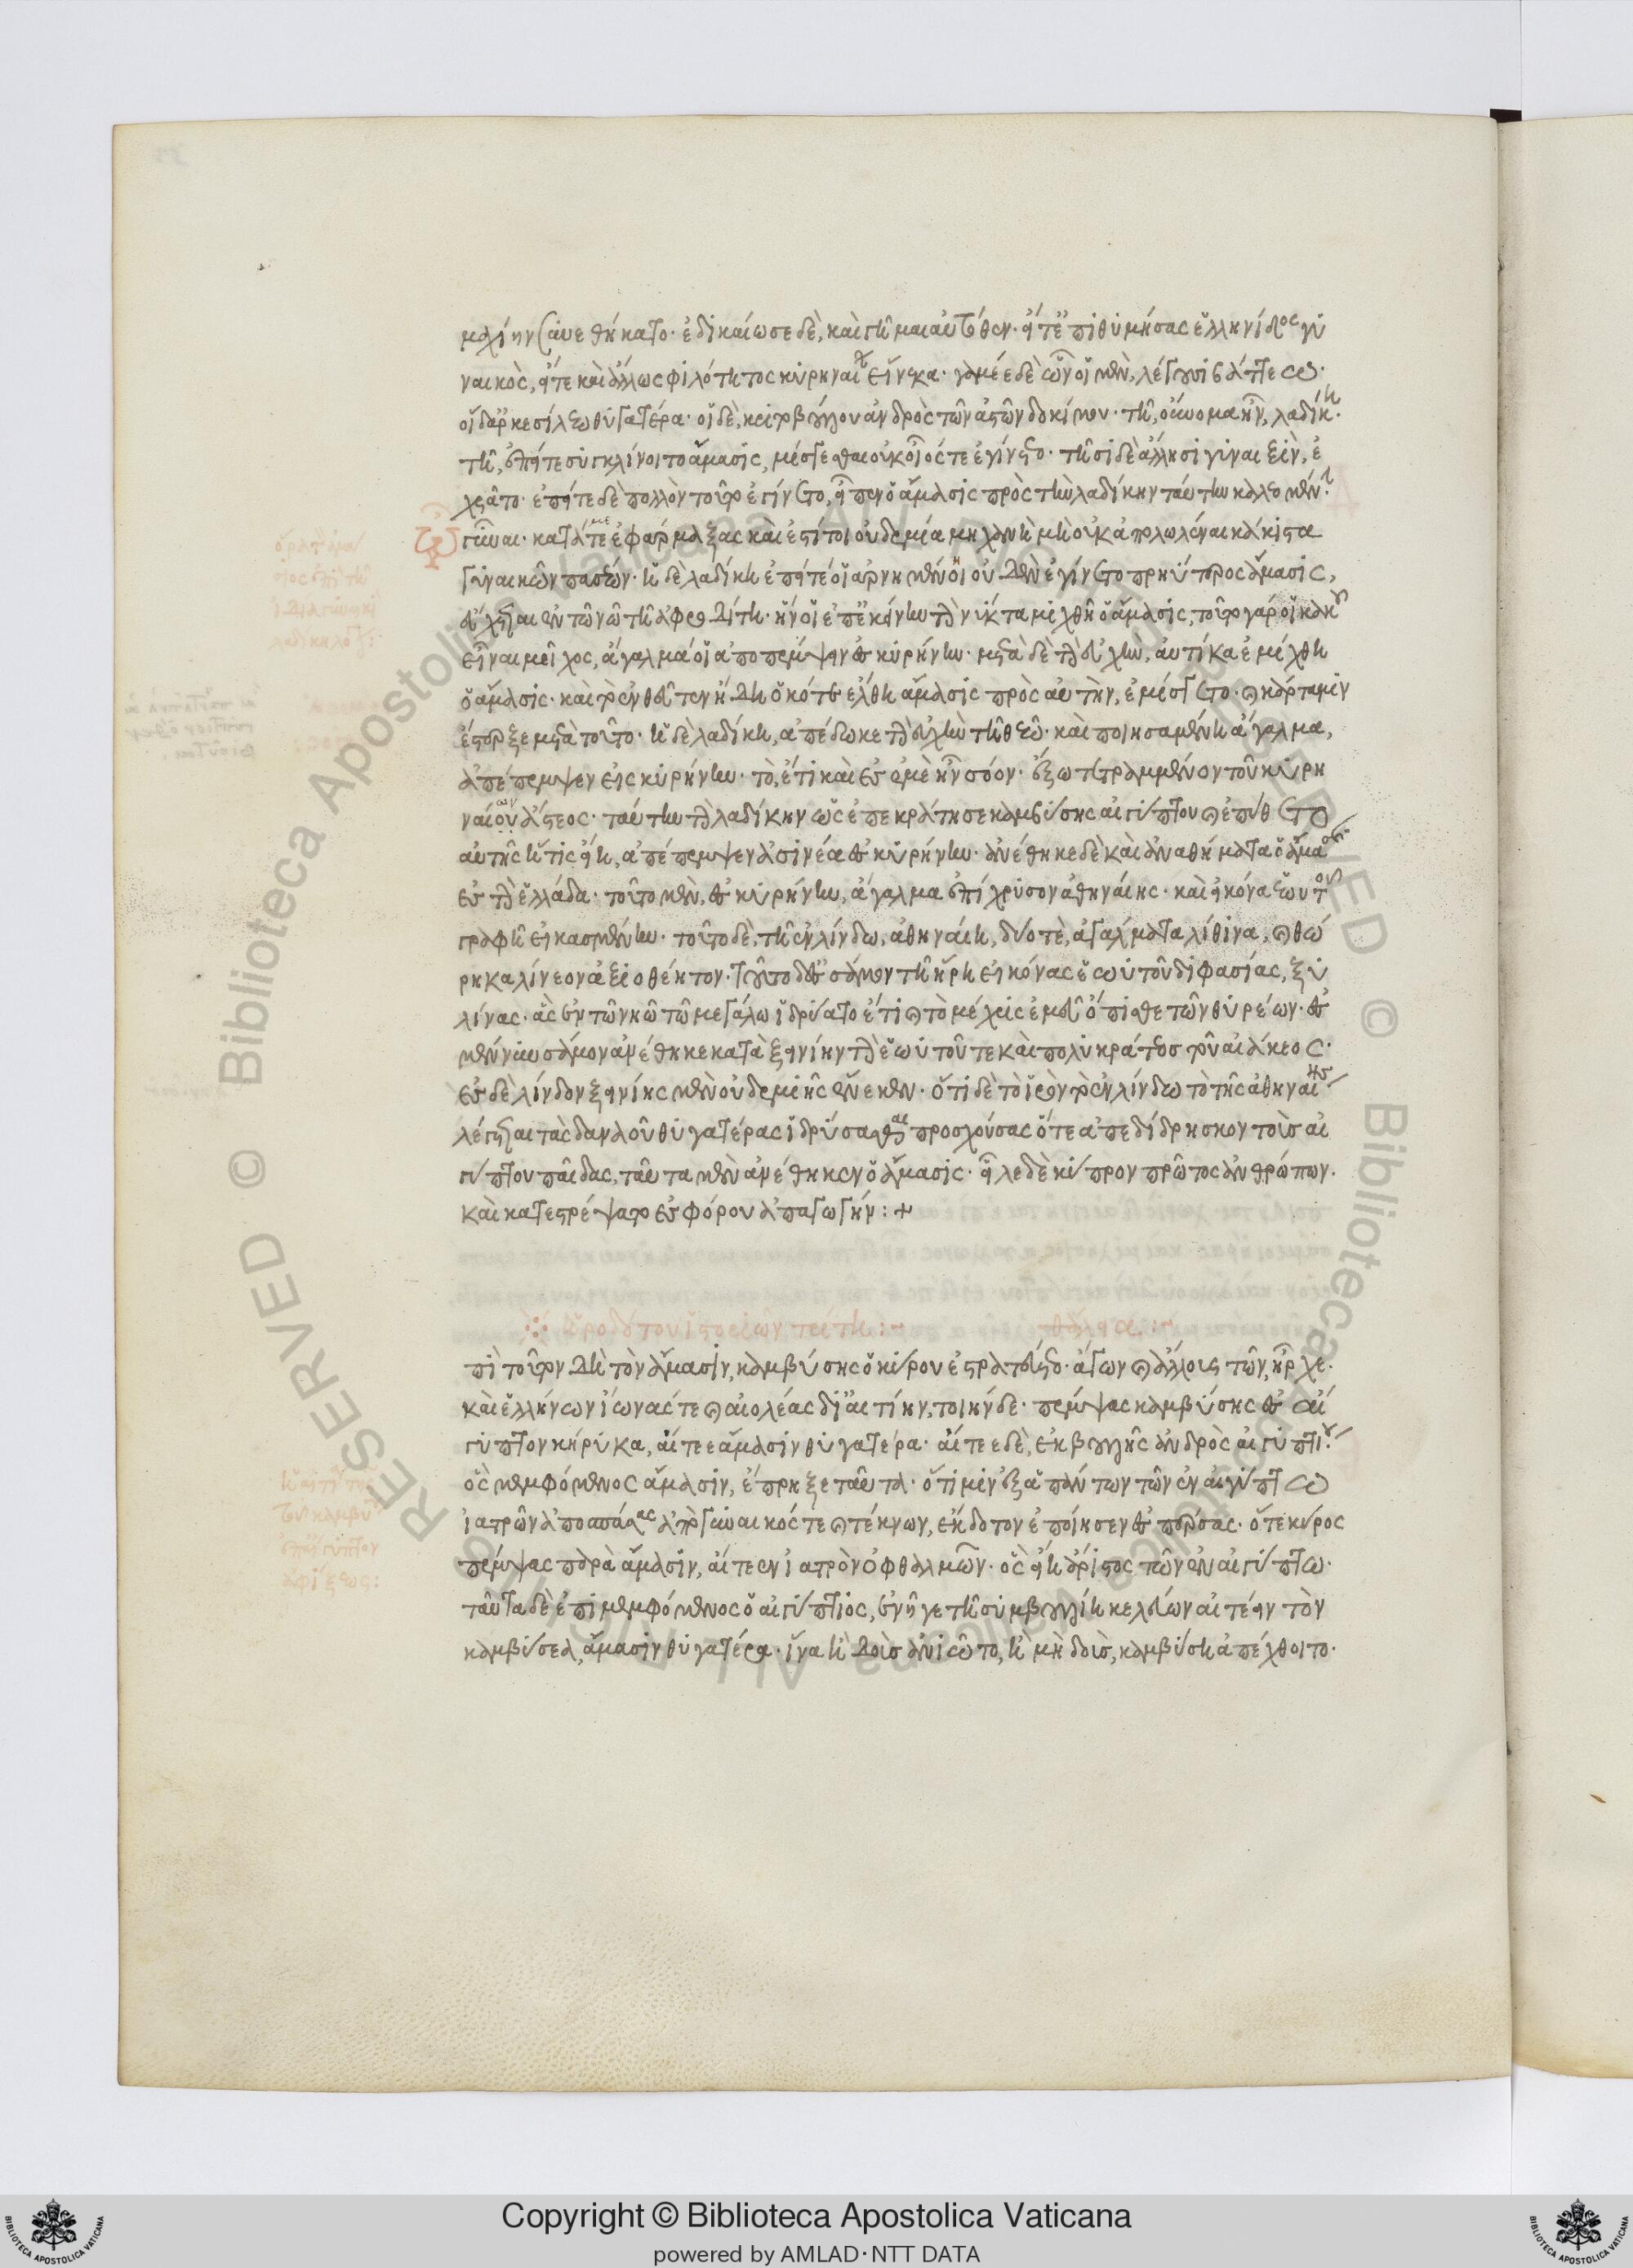 μαιχίην συνεθήκατο· ἐδικαίωσε δὲ, καὶ γῆμαι αὐτόθεν· εἴτε ἐπιθυμήσας ἑλληνίδος γυ
ναικὸς, εἴτε καὶ ἄλλως φιλότητος κυρηναίων εἵνεκα· γαμέει δὲ ὦν οἱ μὲν, λέγουσι βάττεω·
οἱ δ' ἀρκεσίλεω θυγατέρα· οἱ δὲ, κριτοβούλου ἀνδρὸς τῶν ἀστῶν δοκίμου· τῆ, οὔνομα ἦν, λαδίκη·
τῆ, ἐπείτε συγκλίνοιτο ἄμασις, μίσγεσθαι οὐκ οἷός τε ἐγίνετο· τῆσι δὲ ἄλλησι γυναιξὶν, ἐ
χρᾶτο· ἐπείτε δὲ πολλὸν τοῦτο ἐγίνετο, εἶπεν ὁ ἄμασις πρὸς τὴν λαδίκην ταύτην καλεομένην·
γύναι· κατά με ἐφάρμαξας καὶ ἔστι τοι οὐδεμία μηχανὴ μὴ οὐκ ἀπολωλέναι κάκιστα
γυναικῶν πασέων· ἡ δὲ λαδίκη ἐπείτε οἱ ἀρνημένη οἱ οὐδὲν ἐγίνετο πρηύτερος ἄμασις,
εὔχεται ἐν τῶ νῶ τῆ ἀφροδίτη· ἤν οἱ ἐπ' ἐκείνην τὴν νύκτα μιχθῆ ὁ ἄμασις, τοῦτο γάρ οἱ κακοῦ
εἶναι μῆχος, ἄγαλμά οἱ ἀποπέμψειν ἐς κυρήνην· μετὰ δὲ τὴν εὐχὴν, αὐτίκα ἐμίχθη
ὁ ἄμασις· καὶ τὸ ἐνθεῦτεν ἤδη ὁκότε ἔλθη ἄμασις πρὸς αὐτὴν, ἐμίσγετο· καὶ κάρτα μιν
ἔστερξε μετὰ τοῦτο· ἡ δὲ λαδίκη, ἀπέδωκε τὴν εὐχὴν τῆ θεῶ· καὶ ποιησαμένη ἄγαλμα,
ἀπέπεμψεν εἰς κυρήνην· τὸ, ἔτι καὶ ἐς ἐμὲ ἦν σόον· ἔξω τετραμμένον τοῦ κυρη
ναίων ἄστεος· ταύτην τὴν λαδίκην ὡς ἐπεκράτησε καμβύσης αἰγύπτου καὶ ἐπύθετο
αὐτῆς ἥτις εἴη, ἀπέπεμψεν ἀσινέα ἐς κυρήνην· ἀνέθηκε δὲ καὶ ἀναθήματα ὁ ἄμασις
ἐς τὴν ἑλλάδα· τοῦτο μὲν, ἐς κυρήνην, ἄγαλμα ἐπίχρυσον ἀθηναίης· καὶ εἰκόνα ἑωυτοῦ
γραφῆ εἰκασμένην· τοῦτο δὲ, τῆ ἐν λίνδω, ἀθηναίη, δύο τὲ, ἀγάλματα λίθινα, καὶ θώ
ρηκα λίνεον ἀξιοθέητον· τοῦτο δ' ἐς σάμον τῆ ἥρη εἰκόνας ἑωυτοῦ διφασίας, ξυ
λίνας· αἳ ἐν τῶ νηῶ τῶ μεγάλω ἱδρύατο ἔτι καὶ τὸ μέχρις ἐμεῦ ὄπισθε τῶν θυρέων· ἐς
μέν νυν σάμον ἀνέθηκε κατὰ ξεινίην τὴν ἑωυτοῦ τε καὶ πολυκράτεος τοῦ αἰάκεος·
ἐς δὲ λίνδον ξεινίης μὲν οὐδεμιῆς εἵνεκεν· ὅτι δὲ τὸ ἱερὸν τὸ ἐν λίνδω τὸ τῆς ἀθηναίης
λέγεται τὰς δαναοῦ θυγατέρας ἱδρύσασθαι προσχούσας ὅτε ἀπεδίδρησκον τοὺς αἰ
γύπτου παῖδας, ταῦτα μὲν ἀνέθηκεν ὁ ἄμασις· εἷλε δὲ κύπρον πρῶτος ἀνθρώπων·
καὶ κατεστρέψατο ἐς φόρου ἀπαγωγήν:+
ἡροδότου ἱστοριῶν τρίτη:- θάλεια:-
πὶ τοῦτον δὴ τὸν ἄμασιν, καμβύσης ὁ κύρου ἐστρατεύετο· ἄγων καὶ ἄλλους τῶν, ἦρχε·
καὶ ἑλλήνων ἴωνάς τε καὶ αἰολέας δι' αἰτίην, τοιήνδε· πέμψας καμβύσης ἐς αἴ
γυπτον κήρυκα, αἴτεε ἄμασιν θυγατέρα· αἴτεε δὲ, ἐκ βουλῆς ἀνδρὸς αἰγυπτίου·
ὃς μεμφόμενος ἄμασιν, ἔπρηξε ταῦτα· ὅτι μιν ἐξ ἁπάντων τῶν ἐν αἰγύπτω
ἰατρῶν ἀποσπάσας ἀπὸ γυναικός τε καὶ τέκνων, ἔκδοτον ἐποίησεν ἐς πέρσας· ὅτε κύρος
πέμψας παρὰ ἄμασιν, αἴτεεν ἰατρὸν ὀφθαλμῶν· ὃς εἴη ἄριστος τῶν ἐν αἰγύπτω·
ταῦτα δὲ ἐπιμεμφόμενος ὁ αἰγύπτιος, ἐνῆγε τῆ συμβουλίη κελεύων αἰτέειν τὸν
καμβύσεα, ἄμασιν θυγατέρα· ἵνα ἢ δοὺς ἀνιῶτο, ἢ μὴ δοὺς, καμβύση ἀπέχθοιτο·